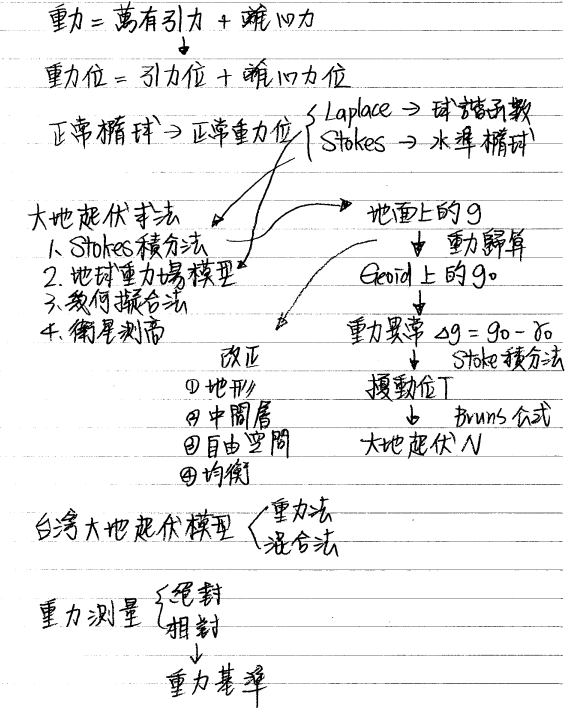 重力 = 萬有引力 + 離心力
↓
重力位 = 引力位 + 離心力位
正常橢球 → 正常重力位
Laplace → 球諧函數
Stokes → 水準橢球
大地起伏求法
1. Stokes積分法
2. 地球重力場模型
3. 幾何擬合法
4. 衛星測高
地面上的g
↓ 重力歸算
Geoid上的g₀
↓
重力異常 Δg = g₀ - γ₀
↓ Stoke積分法
擾動位T
↓ Bruns公式
大地起伏N
改正
① 地形
② 中間層
③ 自由空間
④ 均衡
台灣大地起伏模型
重力法
混合法
重力測量
絕對
相對
↓
重力基準